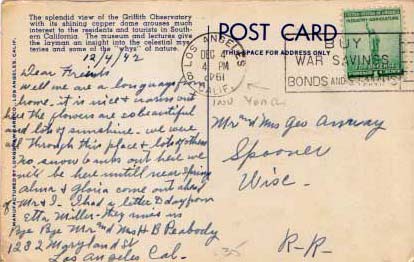 The splendid view of the Griffith Observatory
with its shining copper dome arouses much
interest to the residents and tourists in South-
ern California. The museum and lectures give
the layman an insight into the celestial mys-
teries and some of the "whys" of nature.
12/4/42
Dear Friends
Well we are a long ways from
home. it is nice & warm out
here the flowers are so beautiful
and lots of sunshine. we were
all through this place & lots of others
No snow banks out here we
will be here untill near Spring
alma & Gloria come out ahead
of Mr & I. I had a letter to day from
Etta Miller. they was in
Bye Bye Mr and Ms H B Peabody
1232 Maryland St
Los Angeles Cal-
POST CARD
THIS SPACE FOR ADDRESS ONLY
LOS ANGELES
DEC 4
4 PM
CALIF.
BUY
WAR SAVINGS
BONDS AND STAMPS
Mr and Ms Geo
Spooner
Wisc.
R-R-